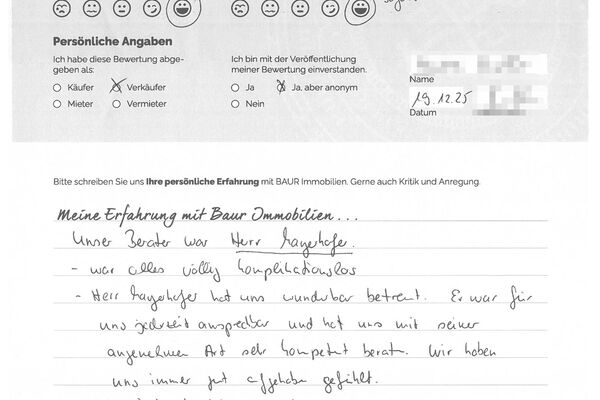 Persönliche Angaben
Ich habe diese Bewertung abge-
geben als:
Käufer Verkäufer
Mieter Vermieter
Ich bin mit der Veröffentlichung
meiner Bewertung einverstanden.
Ja Ja, aber anonym
Nein
Name
19.12.25
Datum
Bitte schreiben Sie uns Ihre persönliche Erfahrung mit BAUR Immobilien. Gerne auch Kritik und Anregung.
Meine Erfahrung mit Baur Immobilien...
Unser Berater war Herr Mayerhofer.
- war alles völlig komplikationslos
- Herr Mayerhofer hat uns wunderbar betreut. Er war für
uns jederzeit ansprechbar und hat uns mit seiner
angenehmen Art sehr kompetent beraten. Wir haben
uns immer gut aufgehoben gefühlt.